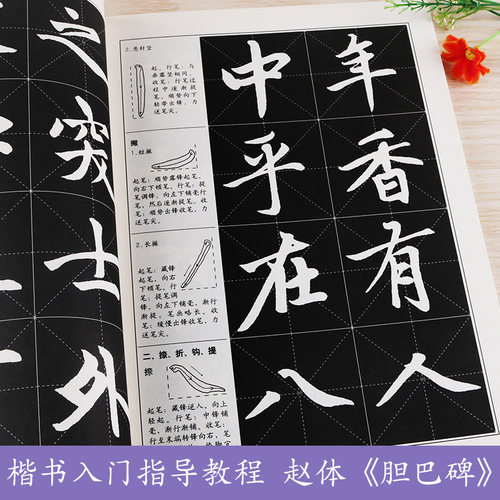 之
突
士
外
2.悬针竖
起,行笔:与
垂露竖相同,
收笔:行笔过
程中逐渐提
笔,顺势向下
轻带出锋,力
送笔尖。
撇
1.短撇
起笔:顺势露锋起笔,
向右下顿笔,行笔:提
笔调锋,向左下铺毫行
笔,然后逐渐提笔,收
笔:顺势出锋收笔,力
送笔尖。
2.长撇
起笔:藏锋
起笔,向右
下顿笔,行
笔:提笔调
锋,向左下铺毫,渐行
渐提,笔画略长。收
笔:缓慢出锋收笔,力
送笔尖。
二、捺、折、钩、提
捺
起笔:藏锋逆入,向上
轻起,行笔:中锋铺
毫,渐行渐铺,收笔:
行至末端转锋向右,笔
中年
乎香
在有
八人
楷书入门指导教程 赵体《胆巴碑》